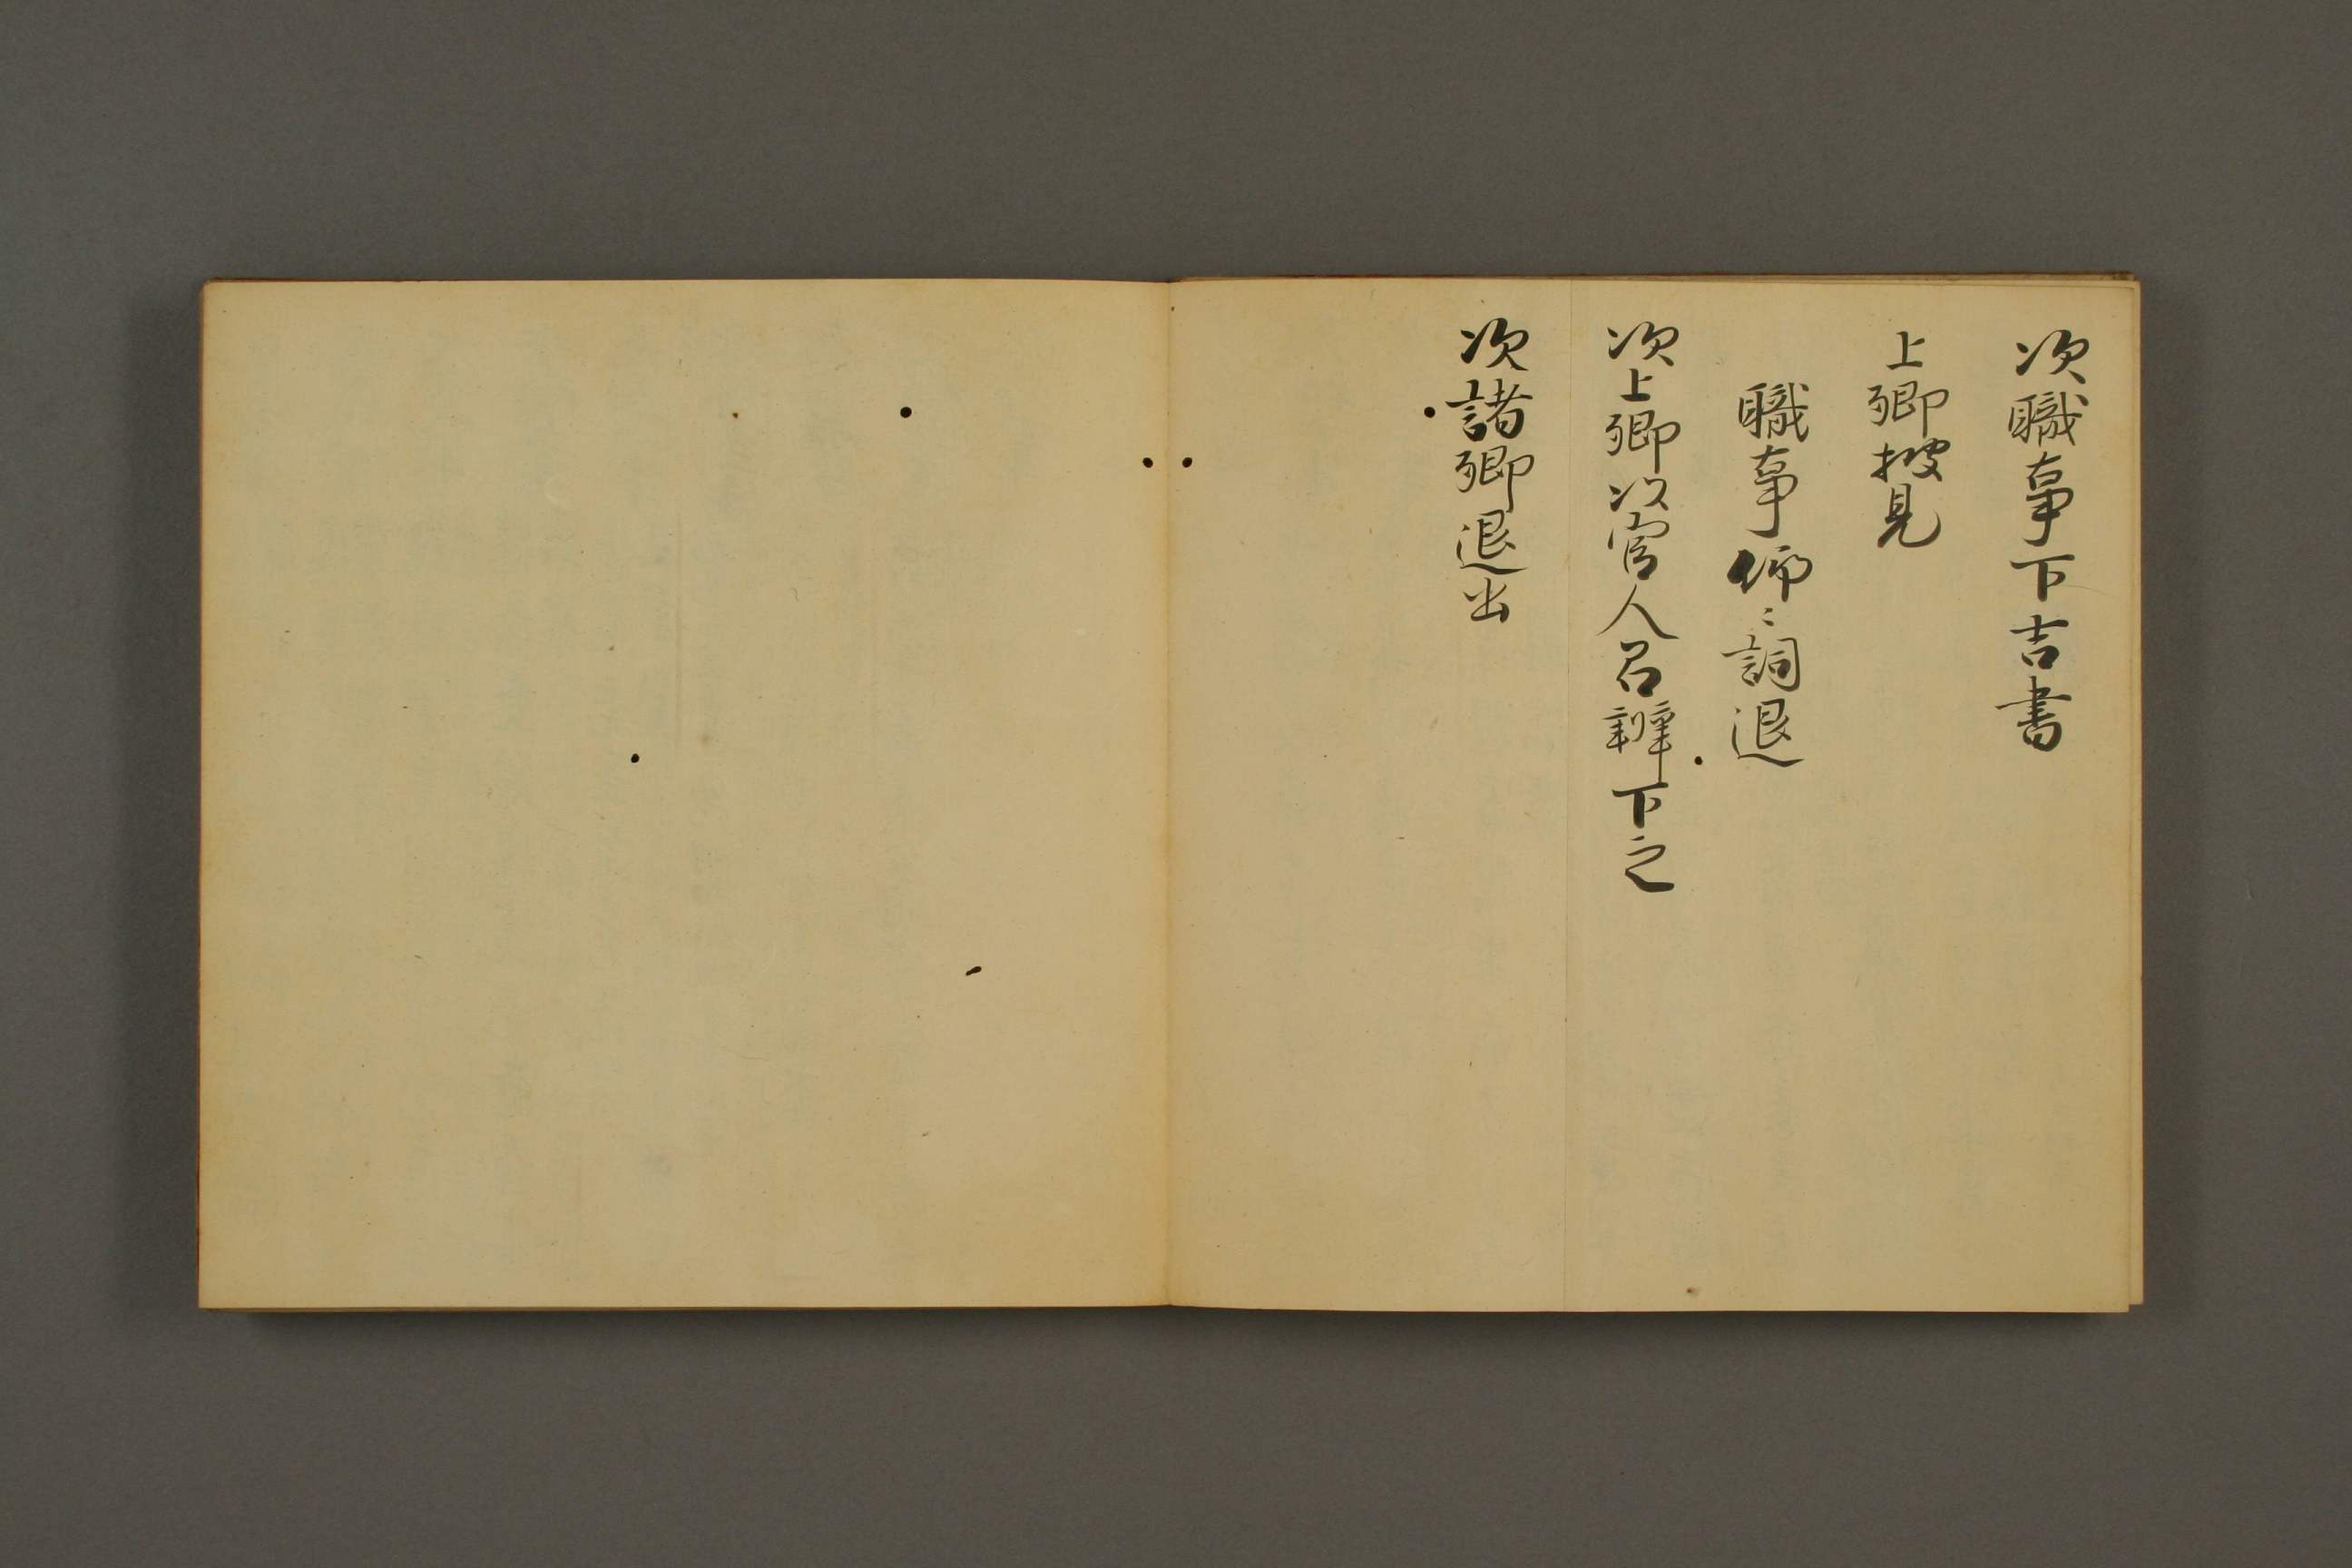 次職事下吉書
上卿披見
職事仰〻詞退
次上卿以官人召辨下之
次諸卿退出